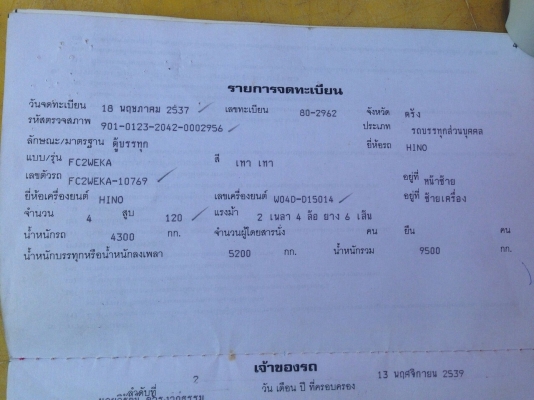 4
รายการจดทะเบียน
วันจดทะเบียน 18 พฤษภาคม 2537 เลขทะเบียน 80-2962 จังหวัด ตรัง
รหัสตรวจสภาพ 901-0123-2042-0002956 ประเภท รถบรรทุกส่วนบุคคล
ลักษณะ/มาตรฐาน ตู้บรรทุก ยี่ห้อรถ HINO
แบบ/รุ่น FC2WEKA สี เทา เทา
เลขตัวรถ FC2WEKA-10769 อยู่ที่ หน้าซ้าย
ยี่ห้อเครื่องยนต์ HINO เลขเครื่องยนต์ W04D-D15014 อยู่ที่ ซ้ายเครื่อง
จำนวน 4 สูบ 120 แรงม้า 2 เพลา 4 ล้อ ยาง 6 เส้น
น้ำหนักรถ 4300 กก. จำนวนผู้โดยสารนั่ง คน ยืน คน
น้ำหนักบรรทุกหรือน้ำหนักลงเพลา 5200 กก. น้ำหนักรวม 9500 กก.
เจ้าของรถ
ลำดับที่ ? วัน เดือน ปี ที่ครอบครอง 13 พฤศจิกายน 2539